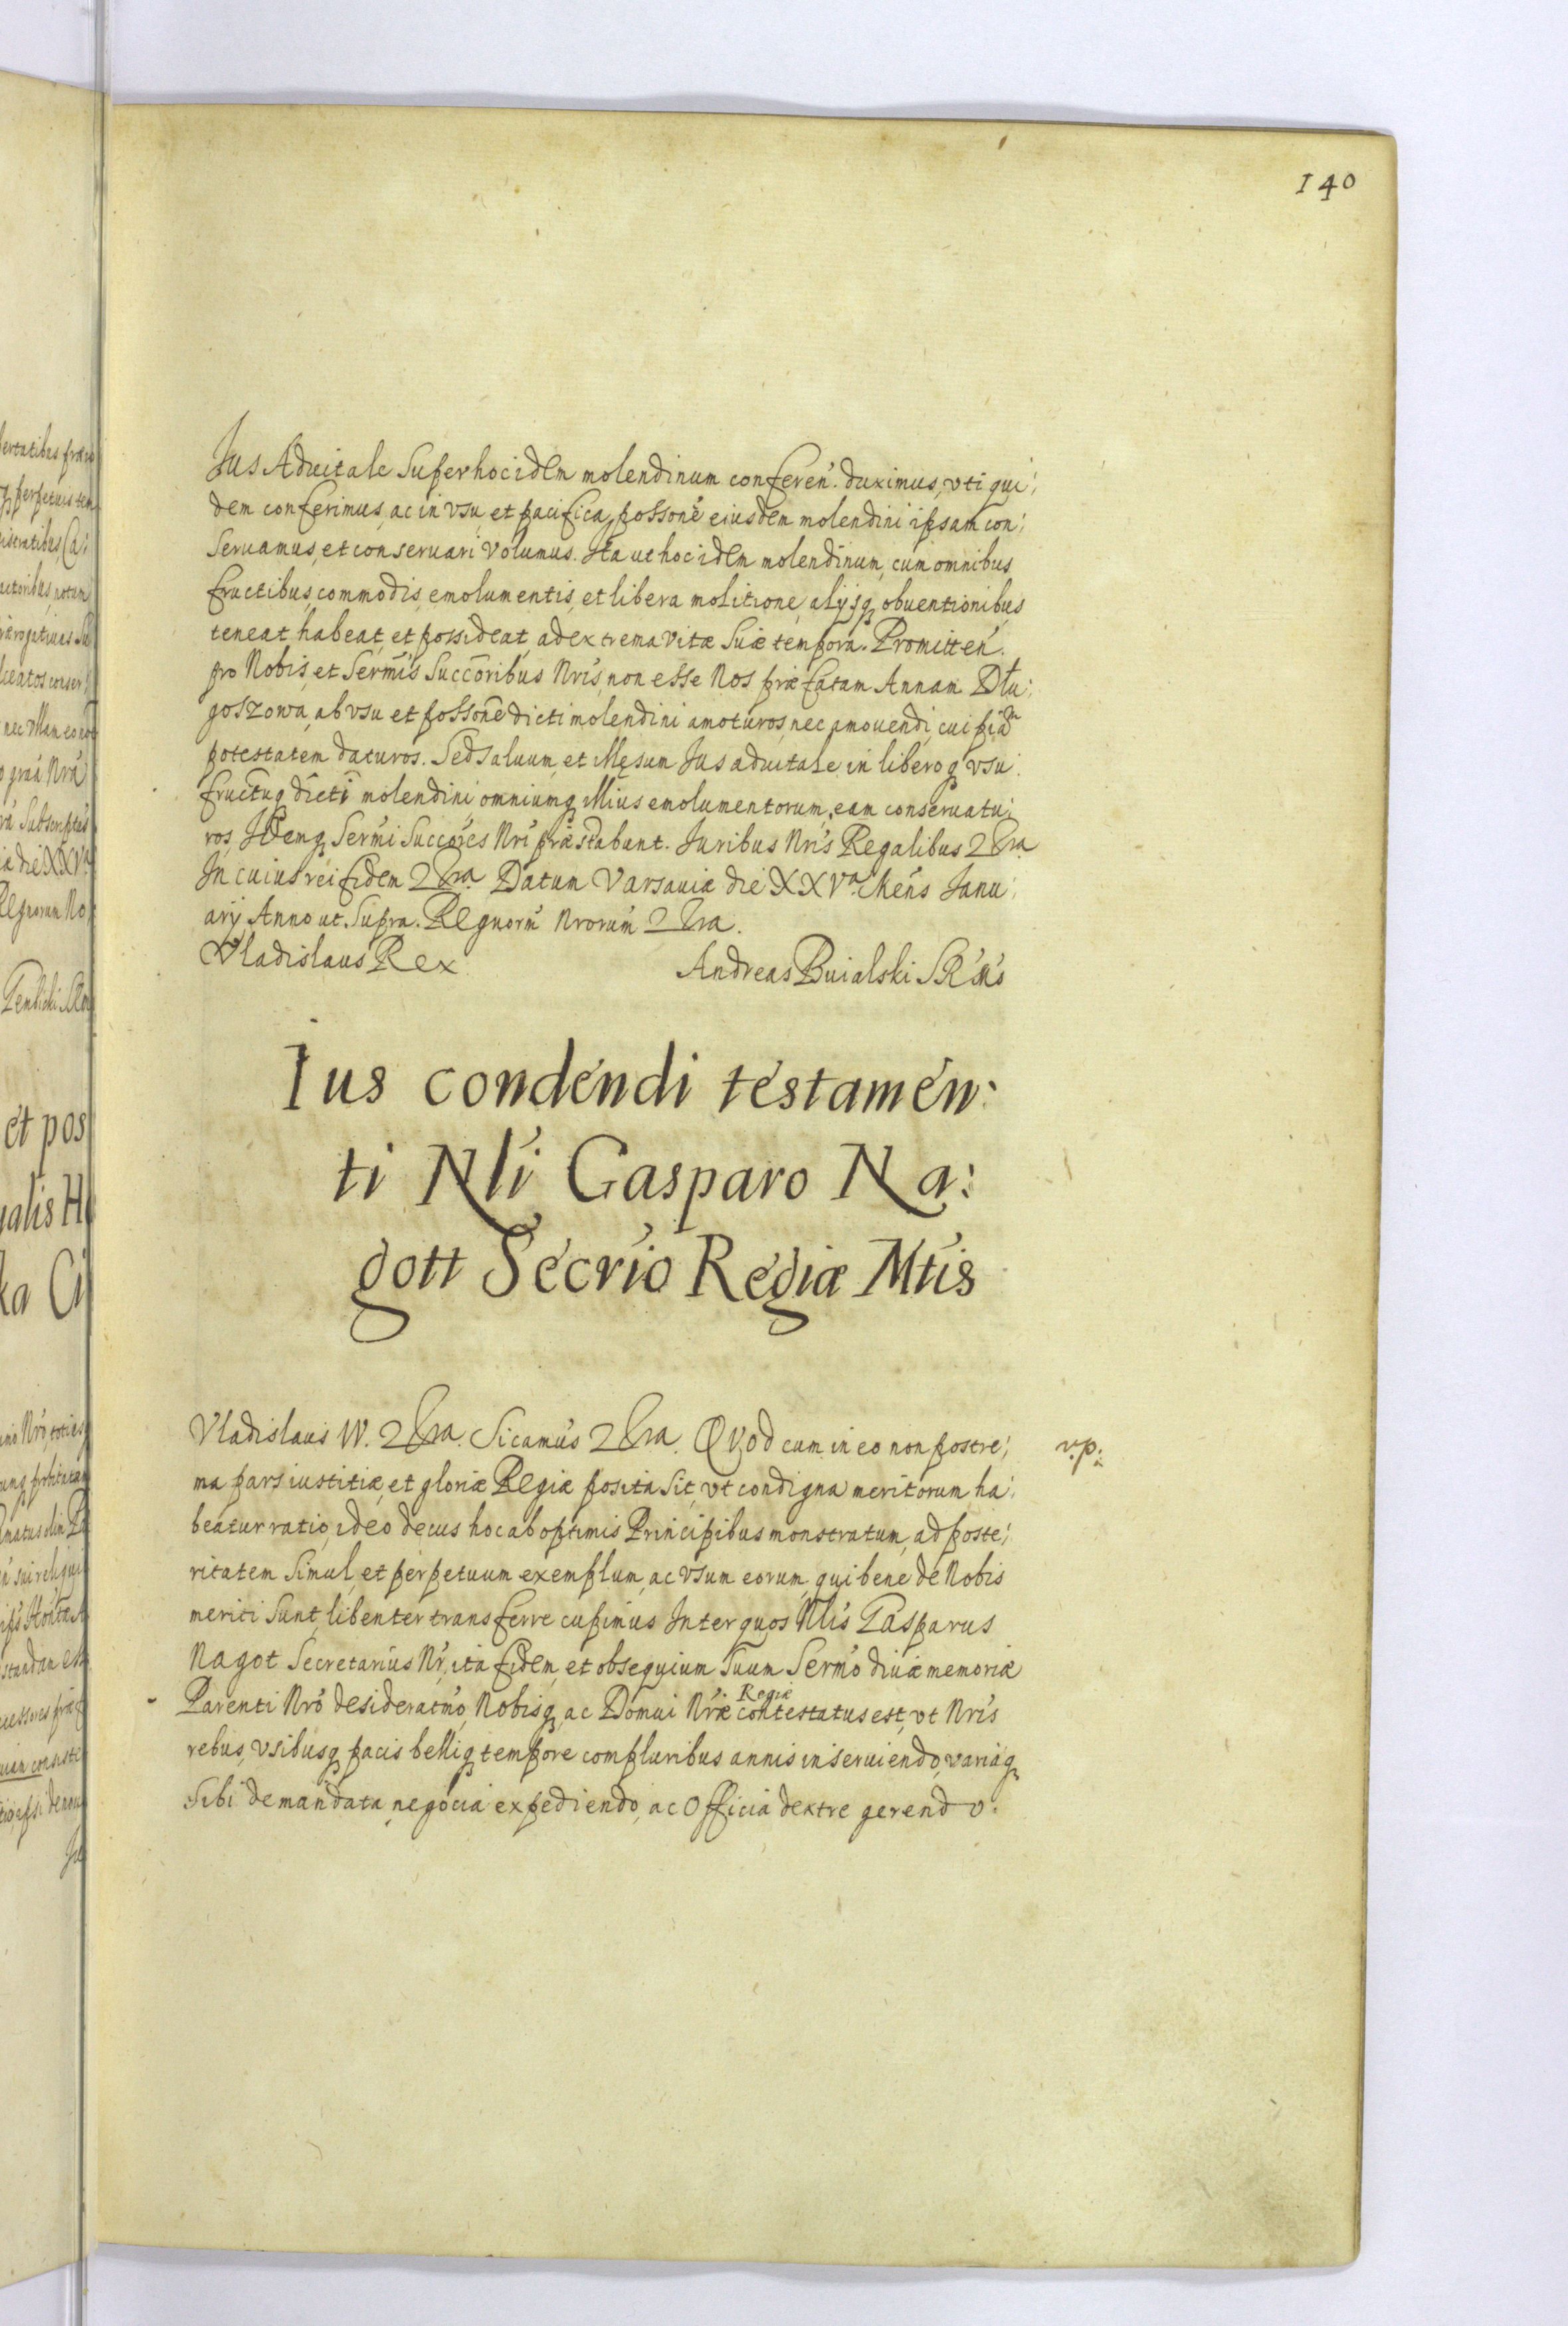 140
Jus Aduitale Super hoc idem molendinum conferen. duximus, vti qui:
dem conferimus, ac in vsu, et pacifica possone eiusdem molendini ipsam con:
Seruamus, et conseruari volumus. Ita ut hoc idem molendinum, cum omnibus
fructibus, commodis, emolumentis, et libera molitione, alijsq obuentionibus
teneat habeat, et possideat, ad extrema vitæ Suæ tempora. Promitten.
pro Nobis, et Sermis Succoribus Nris, non esse Nos præfatam Annam Dłu:
goszowa, ab vsu et possone dicti molendini amoturos, nec amouendi, cuipiam
potestatem daturos. Sed Saluum, et Illęsum Jus aduitale in liberoq vsu:
fructuq dicti molendini, omniumq Illius emolumentorum, eam conseruatu:
ros, Idemq Sermi Succores Nri præstabunt. Juribus Nris Regalibus &ra.
In cuius rei fidem &ra. Datum Varsauiæ die XXVa. Mens Janu:
arij Anno ut Supra. Regnorm Nrorum &ra.
Vladislaus Rex Andreas Buialski SRMs
Ius condendi testamen:
ti Nli Gasparo Na:
gott Secrio Regiæ Mtis
Vladislaus IV. &ra. Sicamus &ra. Quod cum in eo non postre:
ma pars iustitiæ, et gloriæ Regiæ posita Sit, vt condigna meritorum ha:
beatur ratio, ideo decus hoc ab optimis Principibus monstratum, ad poste:
ritatem Simul, et perpetuum exemplum, ac vsum eorum, qui bene de Nobis
meriti Sunt, libenter transferre cupimus Inter quos Nlis Gasparus
Nagot Secretarius Nr, ita fidem, et obsequium Suum Sermo diuæ memoriæ
Parenti Nro desideratmo, Nobisq, ac Domui Nræ Regiæ contestatus est, vt Nris
rebus, vsibusq pacis belliq tempore compluribus annis inseruiendo, variaq
Sibi demandata negocia expediendo, ac Officia dextre gerendo.